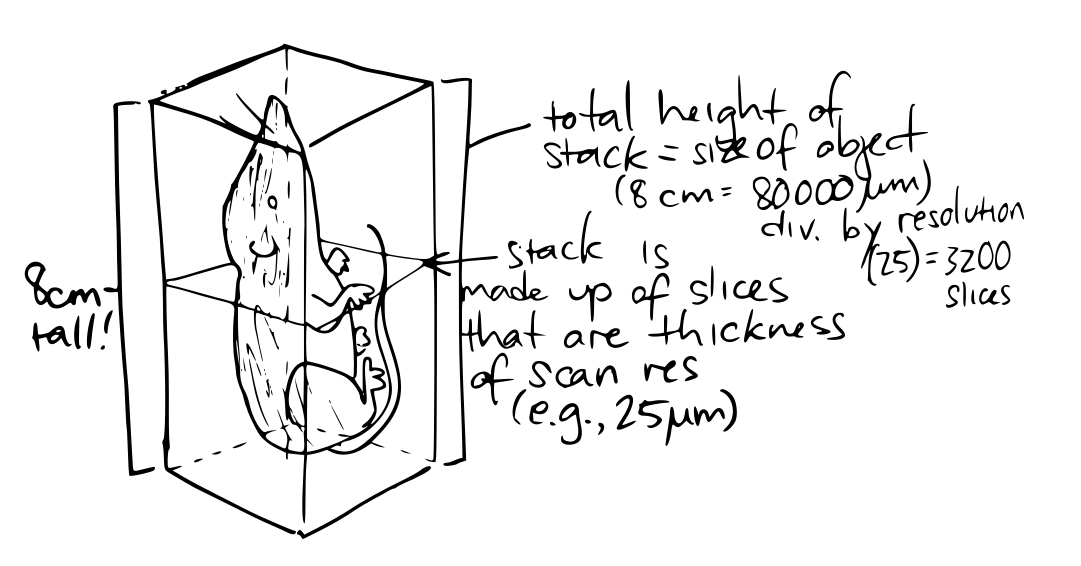 total height of
stack = size of object
(8 cm = 80000 µm)
div. by resolution
(25) = 3200
slices
stack is
made up of slices
that are thickness
of scan res
(e.g., 25µm)
8cm
tall!